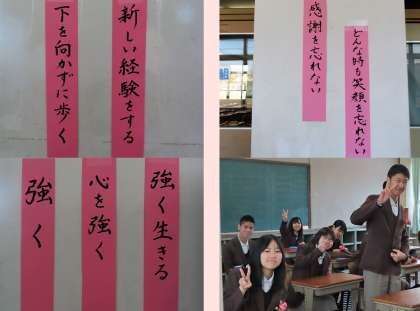 新しい経験をする
下を向かずに歩く
感謝を忘れない
どんな時も笑顔を忘れない
強く生きる
心を強く
強く